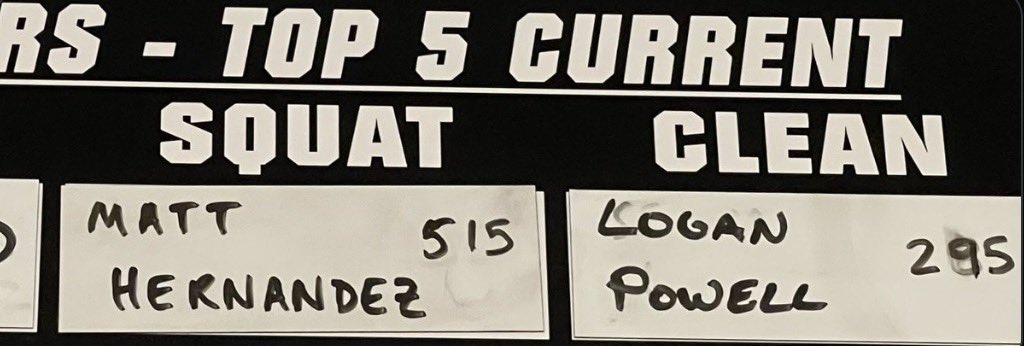 RS - TOP 5 CURRENT
SQUAT CLEAN
MATT 515 LOGAN 295
HERNANDEZ POWELL